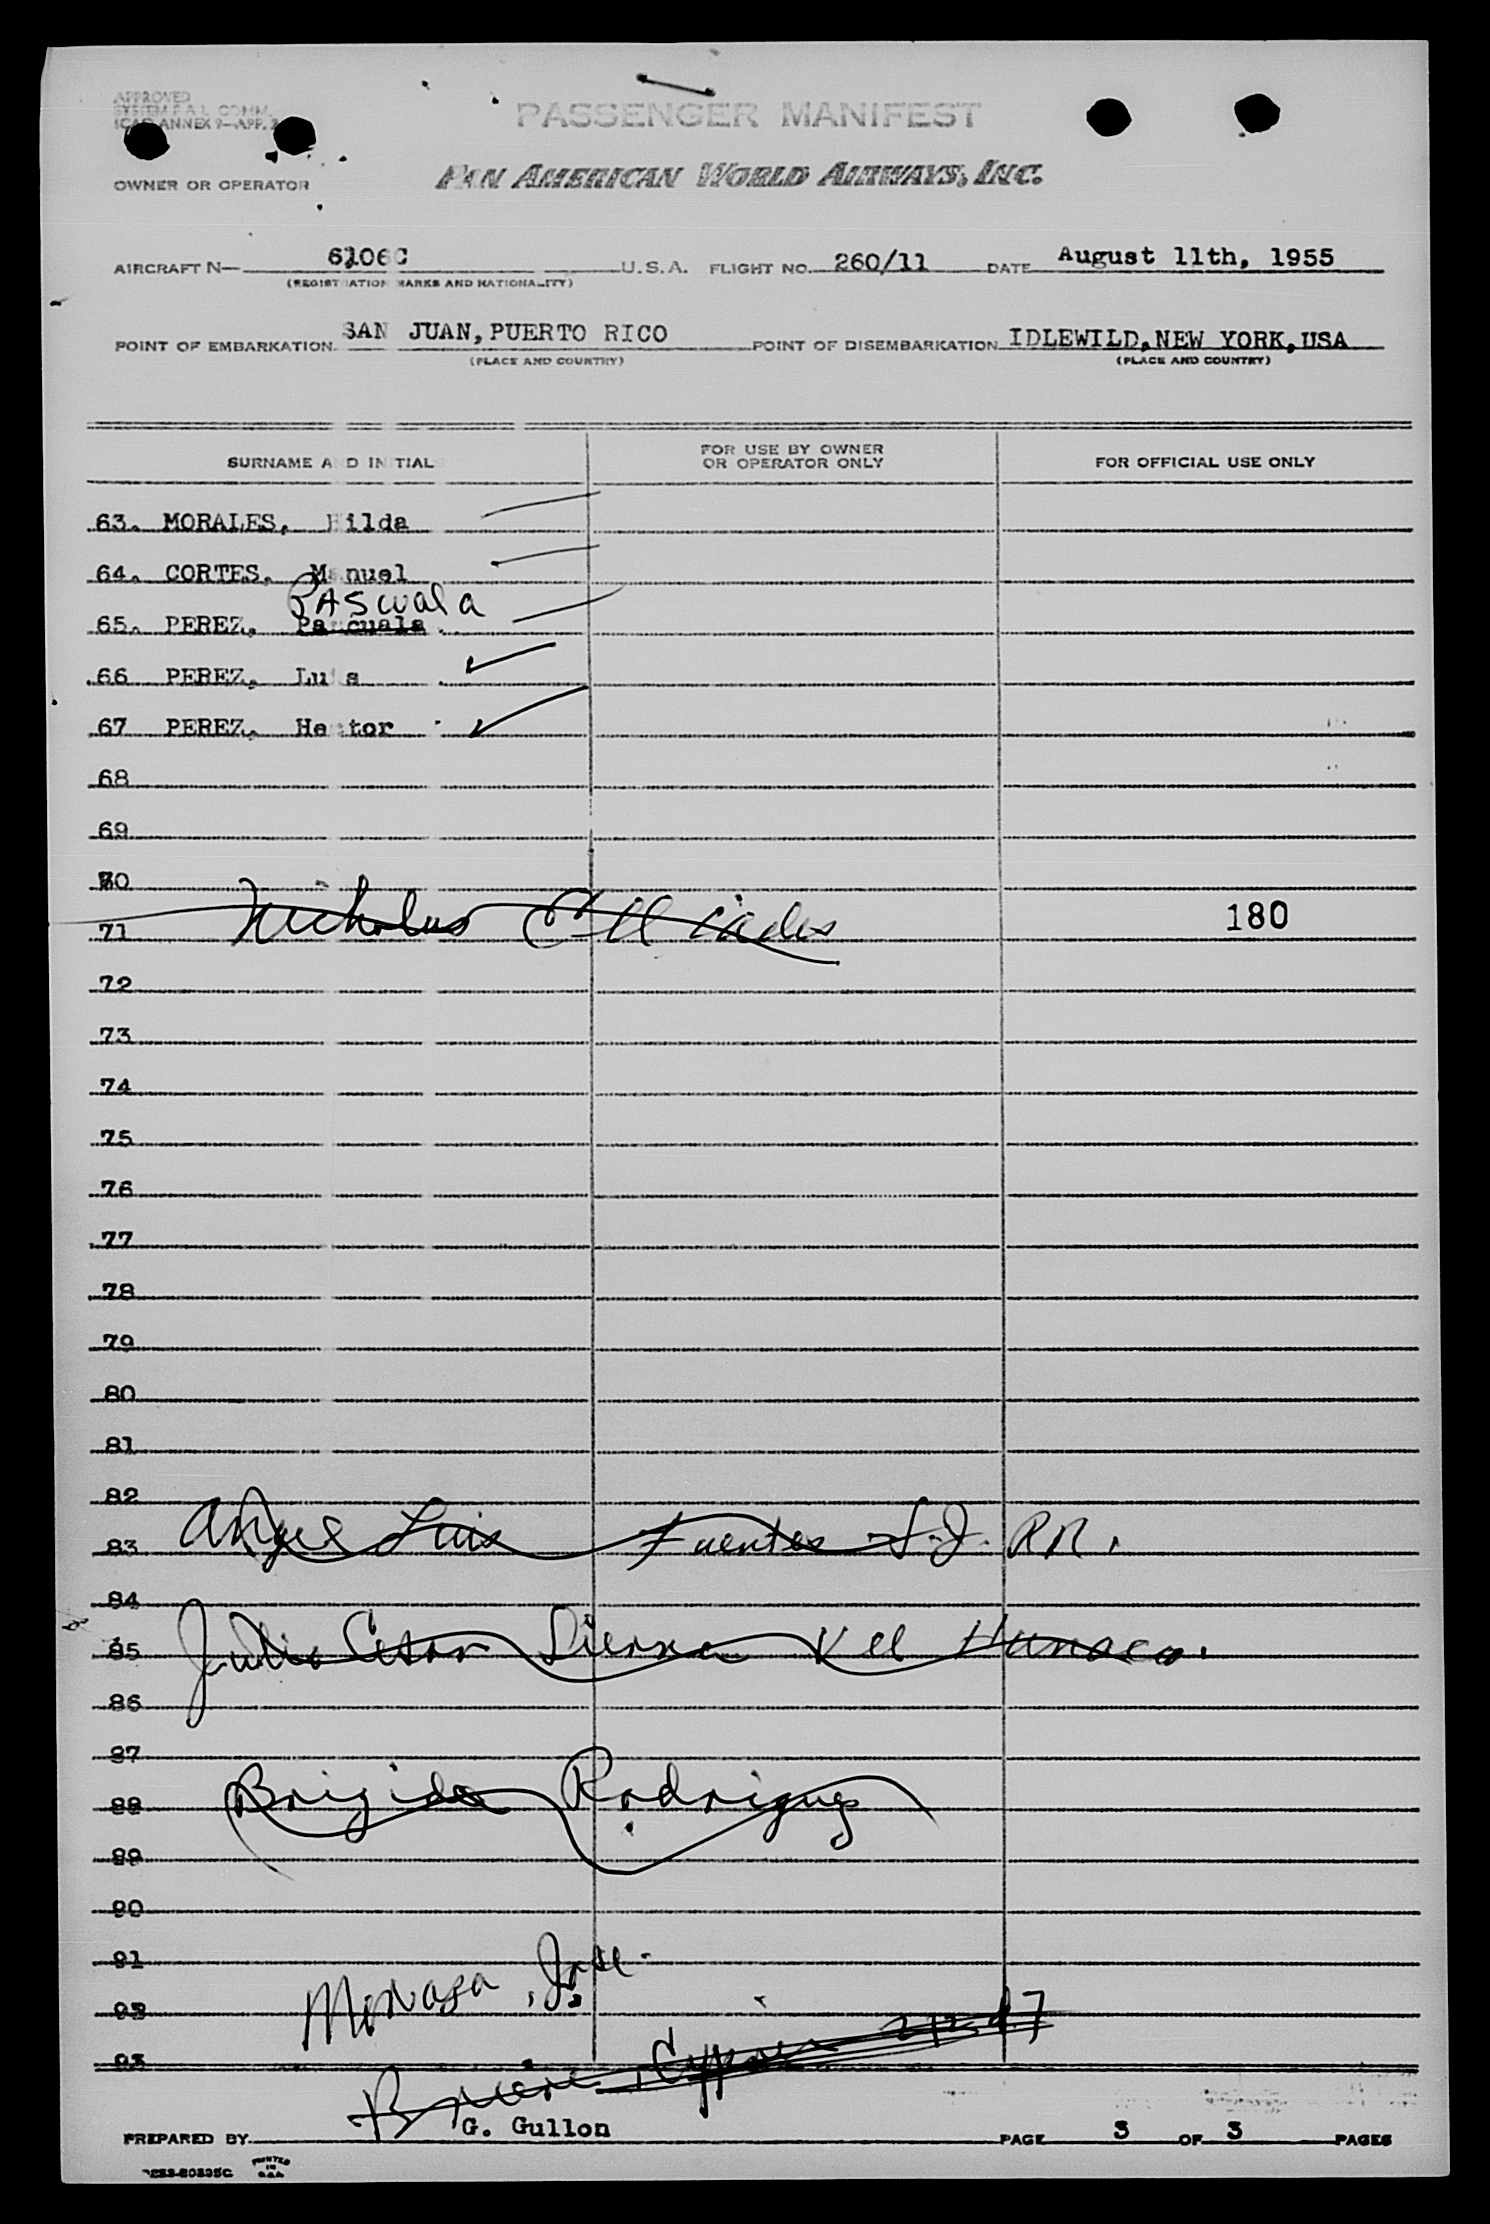 APPROVED
SYSTEM F.A.L. COMM.
ICAO ANNEX 9—APP. 3
PASSENGER MANIFEST
OWNER OR OPERATOR PAN AMERICAN WORLD AIRWAYS, INC.
AIRCRAFT N— 6106C U.S.A. FLIGHT NO. 260/11 DATE August 11th, 1955
(REGISTRATION MARKS AND NATIONALITY)
POINT OF EMBARKATION SAN JUAN, PUERTO RICO POINT OF DISEMBARKATION IDLEWILD, NEW YORK, USA
(PLACE AND COUNTRY) (PLACE AND COUNTRY)
SURNAME AND INITIAL FOR USE BY OWNER OR OPERATOR ONLY FOR OFFICIAL USE ONLY
63. MORALES, Hilda
64. CORTES, Manuel
PAscuala
65. PEREZ, Pascuala
66 PEREZ, Luis
67 PEREZ, Hector
68
69
70
71 Nicholus 180
72
73
74
75
76
77
78
79
80
81
82
83 Angel Luis Fuentes S.J. P.R.
84
85 Julio Cesar Sierra
86
87
88 Brigida Rodriguez
89
90
91
92 José
93
PREPARED BY G. Gullon PAGE 3 OF 3 PAGES
PRINTED IN U.S.A.